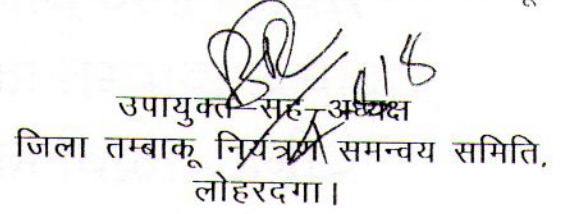 उपायुक्त-सह-अध्यक्ष
जिला तम्बाकू नियंत्रण समन्वय समिति,
लोहरदगा।